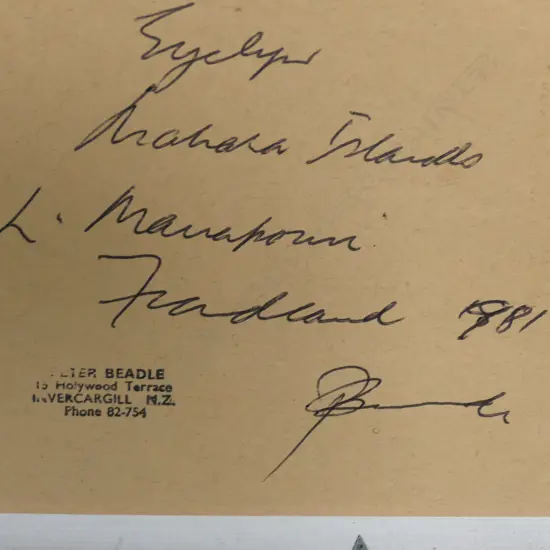 Islands
L. Manapouri
Fiordland 1981
PETER BEADLE
15 Holywood Terrace
INVERCARGILL N.Z.
Phone 82-754